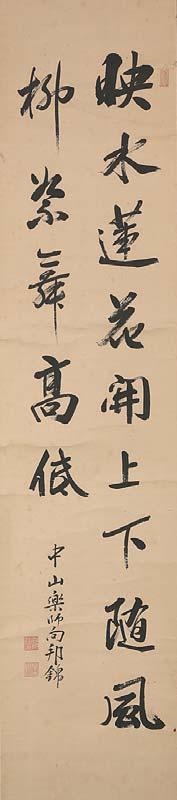 映水蓮花開上下随風
柳絮舞高低
中山樂師向邦錦